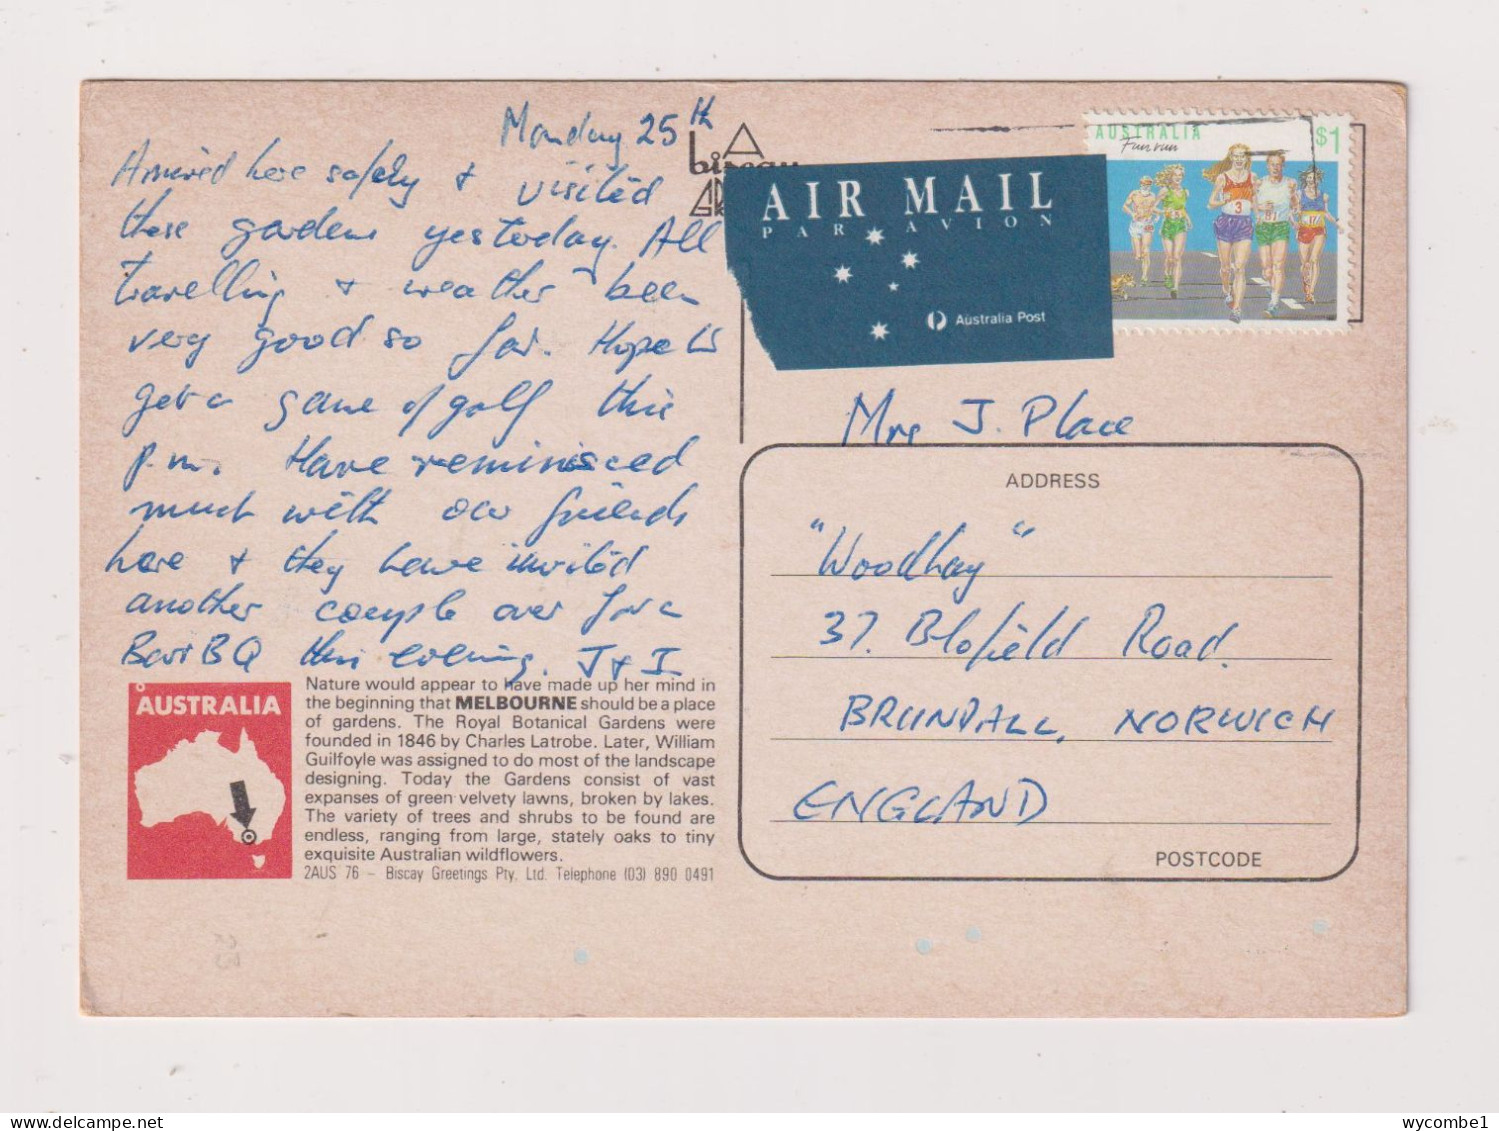 Monday 25th
Arrived here safely + visited
these gardens yesterday. All
travelling + weather been
very good so far. Hope to
get a game of golf this
p.m. Have reminisced
much with our friends
here + they have invited
another couple over for a
Bar BQ this evening. J + I
AUSTRALIA
Nature would appear to have made up her mind in
the beginning that MELBOURNE should be a place
of gardens. The Royal Botanical Gardens were
founded in 1846 by Charles Latrobe. Later, William
Guilfoyle was assigned to do most of the landscape
designing. Today the Gardens consist of vast
expanses of green velvety lawns, broken by lakes.
The variety of trees and shrubs to be found are
endless, ranging from large, stately oaks to tiny
exquisite Australian wildflowers.
2AUS 76 – Biscay Greetings Pty. Ltd. Telephone (03) 890 0491
23
biscay
AIR MAIL
PAR AVION
Australia Post
AUSTRALIA $1
Fun run
3
Mrs J. Place
ADDRESS
"Woodhay"
37. Blofield Road.
BRUNDALL, NORWICH
ENGLAND
POSTCODE
wycombe1